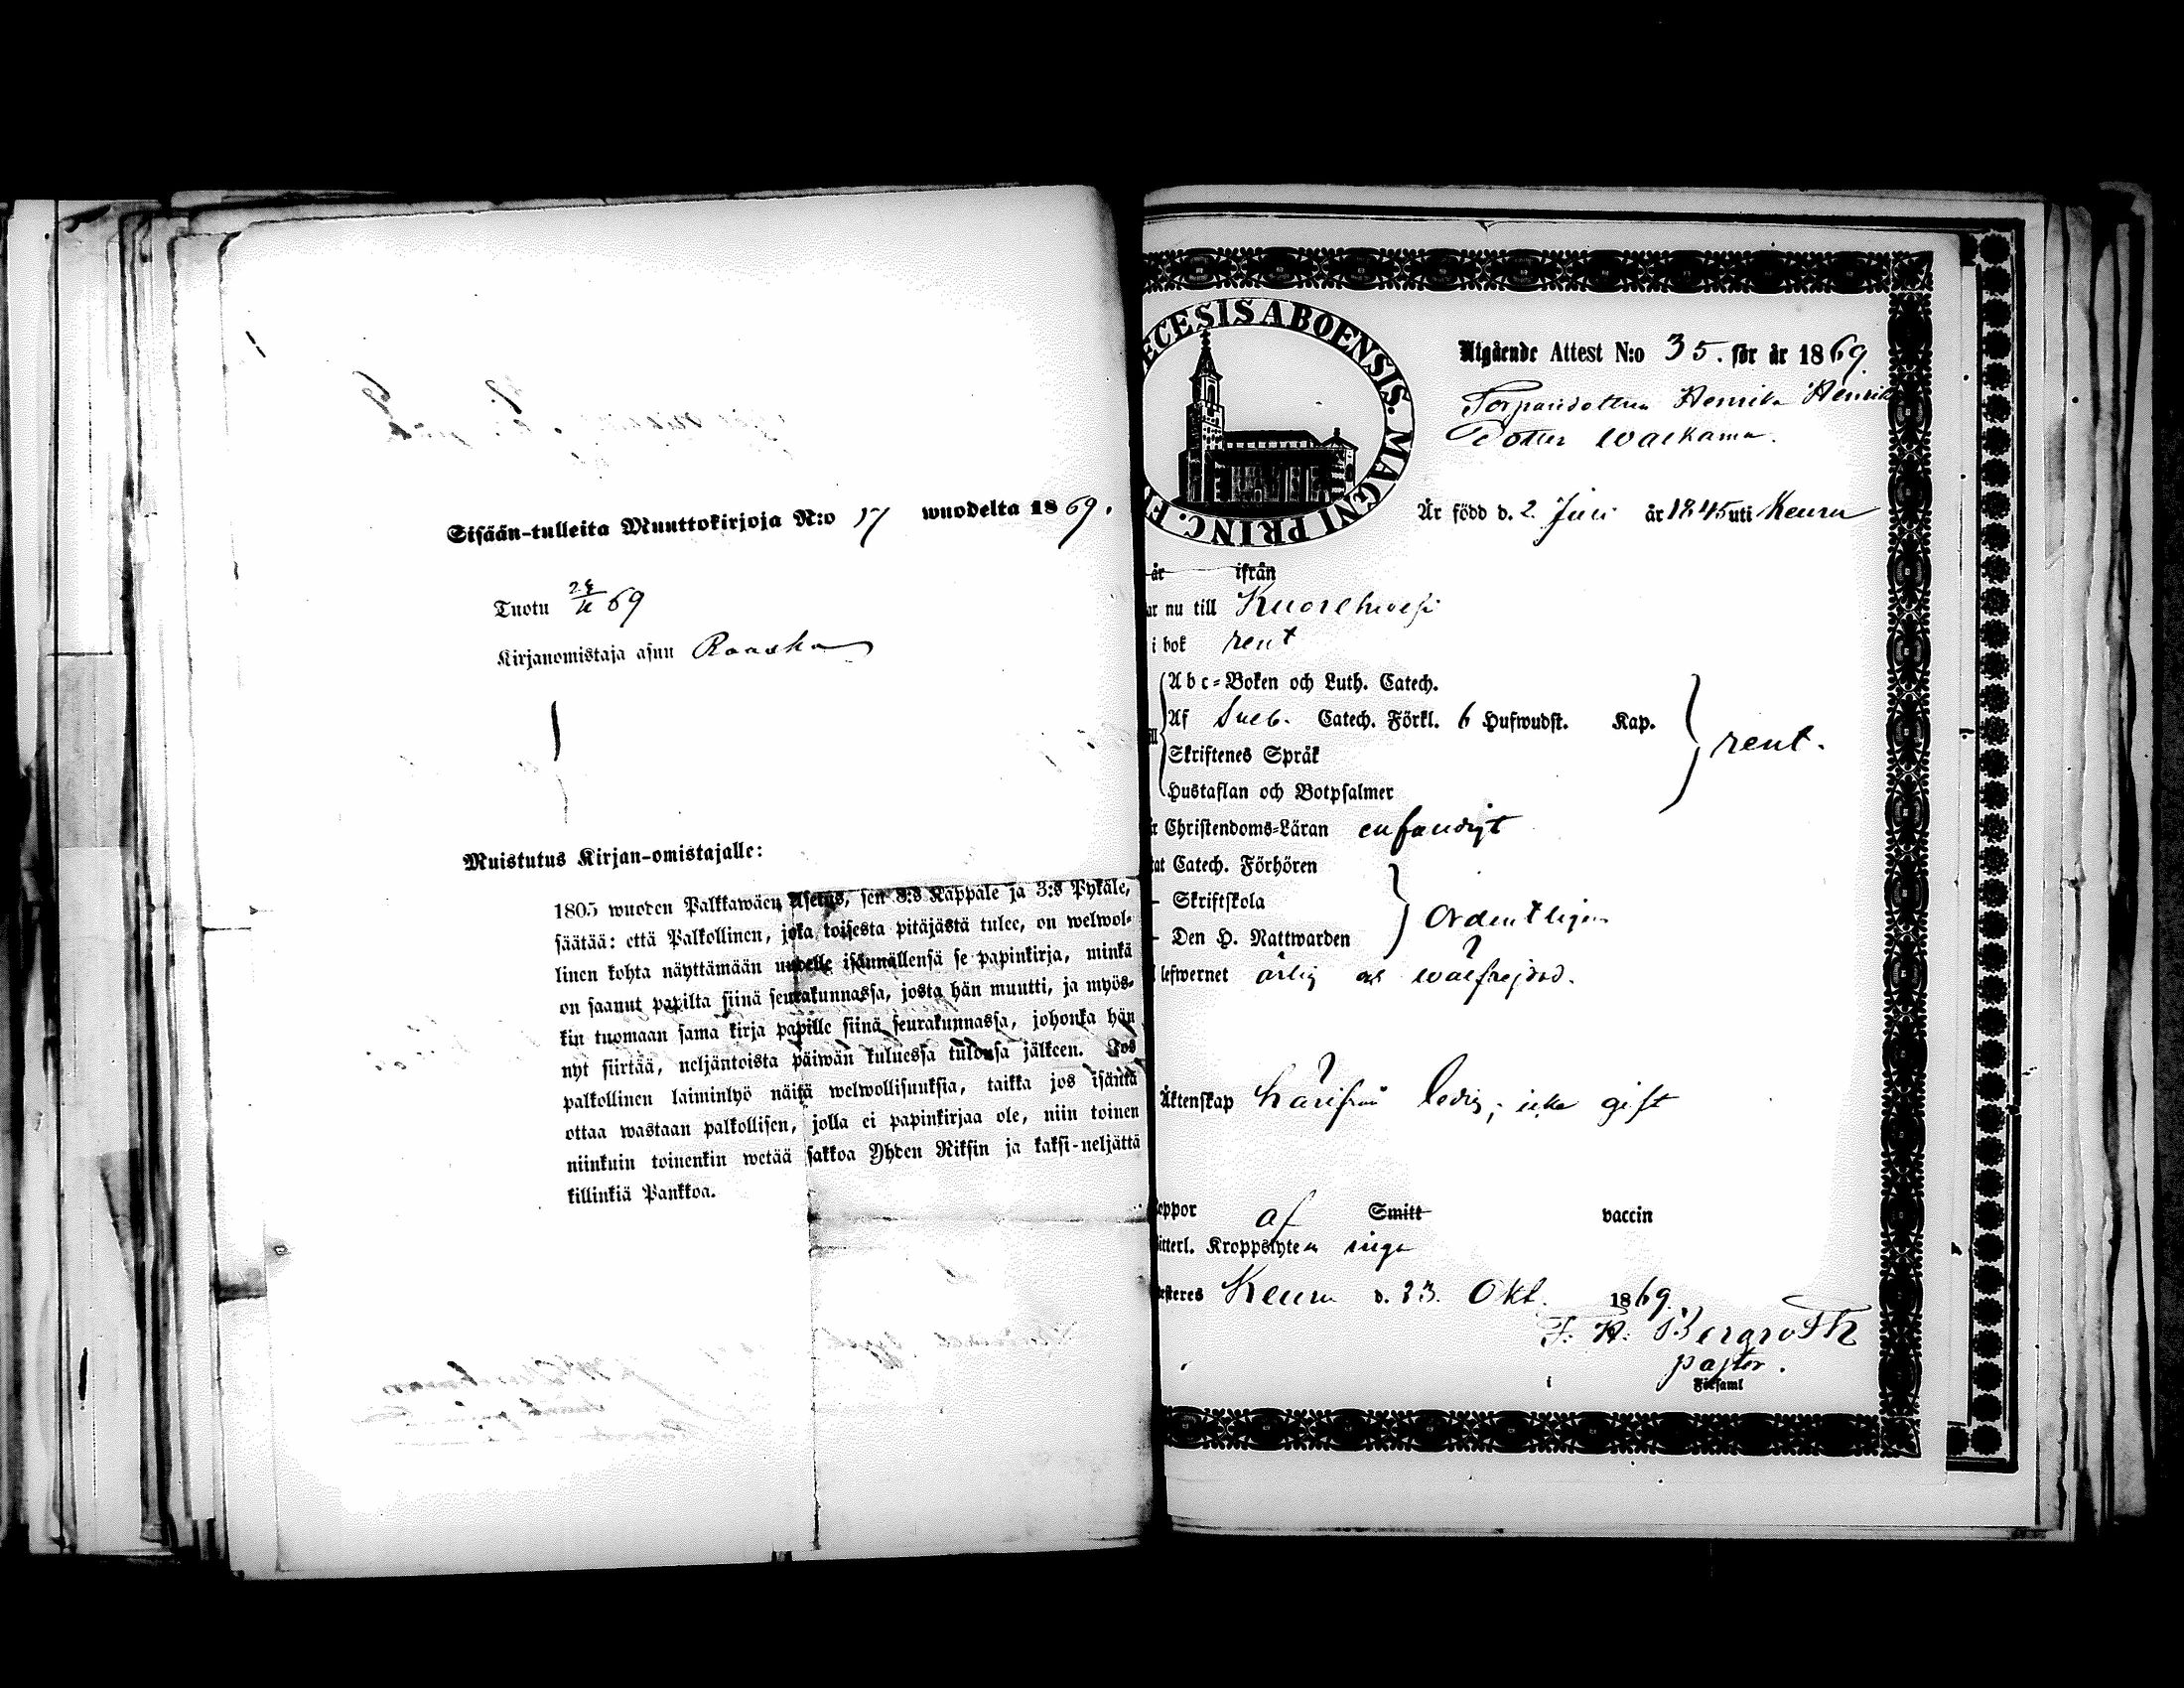 Sisään-tulleita Muuttokirjoja N:o 17 wuodelta 1869.
Tuotu 69
Kirjanomistaja asuu Raaska
Muistutus Kirjan-omistajalle:
1805 wuoden Palkkawäen Asetus, sen 8:s Kappale ja 3:s Pykäle,
säätää: että Palkollinen, joka toisesta pitäjästä tulee, on welwol-
linen kohta näyttämään uudelle isännällensä se papinkirja, minkä
on saanut papilta siinä seurakunnassa, josta hän muutti, ja myös-
kin tuomaan sama kirja papille siinä seurakunnassa, johonka hän
nyt siirtää, neljäntoista päiwän kuluessa tulonsa jälkeen. Jos
palkollinen laiminlyö näitä welwollisuuksia, taikka jos isäntä
ottaa wastaan palkollisen, jolla ei papinkirjaa ole, niin toinen
niinkuin toinenkin wetää sakkoa Yhden Riksin ja kaksi-neljättä
killinkiä Pankkoa.
ECESIS ABOENSIS. MAGNI PRINC. F
Utgående Attest N:o 35. för år 1869
Torparedottren Henrika Henriks
Dotter Walkama.
Är född d. 2 Juli år 1845 uti Keuru
år ifrån
ar nu till Kuorehwesi
i bok rent
Abc-Boken och Luth. Catech.
Af Sveb. Catech. Förkl. 6 Hufwudst. Kap.
rent.
Skriftenes Språk
Hustaflan och Botpsalmer
Christendoms-Läran enfaldigt
tat Catech. Förhören
- Skriftskola
Ordentligen
- Den H. Nattwarden
lefwernet ärlig och wälfrejdad.
Äktenskap härifrån ledig; icke gift
oppor af Smitt vaccin
itterl. Kroppslyten inga
esteres Keuru d. 23. Okt. 1869.
F. H. Bergroth
pastor.
i Församl